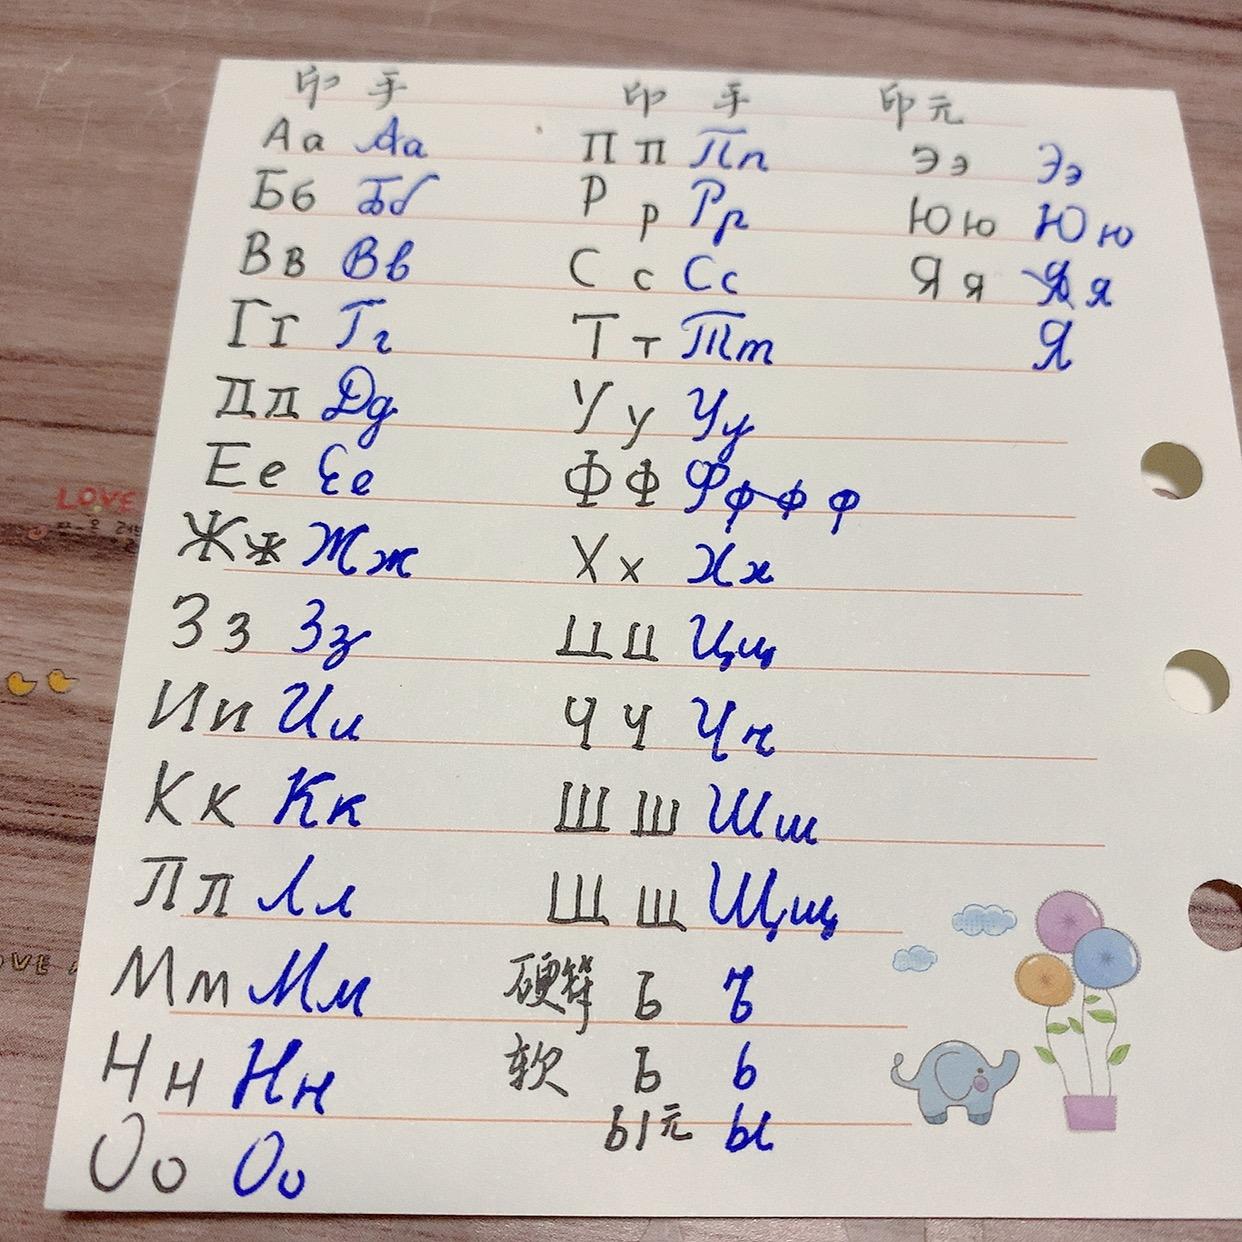 印 手
Аа Аа
Бб Бб
Вв Вв
Гг Гг
Дд Дд
Ее Ее
Жж Жж
Зз Зз
Ии Ии
Кк Кк
Лл Лл
Мм Мм
Нн Нн
Оо Оо
印 手
Пп Пп
Рр Рр
Сс Сс
Тт Тт
Уу Уу
Фф Фф ф ф
Хх Хх
Цц Цц
Чч Чч
Шш Шш
Щщ Щщ
硬符 Ъ ъ
软 Ь ь
ы元 ы
印元
Ээ Ээ
Юю Юю
Яя Яя
Я
LOVE